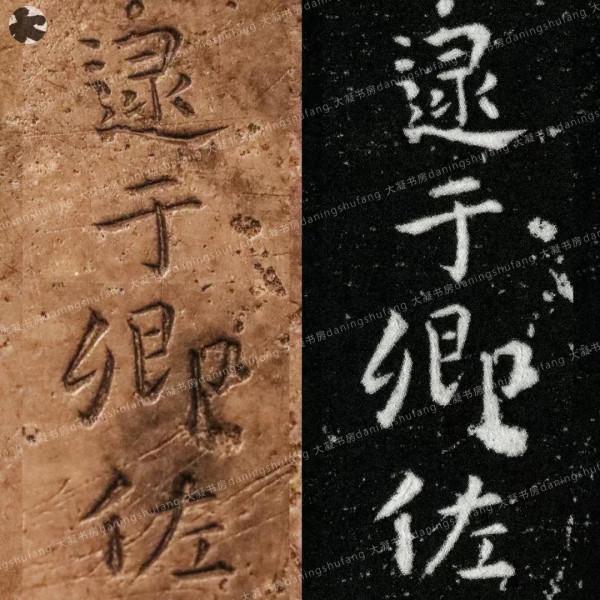 逯于卿佐
逯于卿佐
大凝书房daningshufang